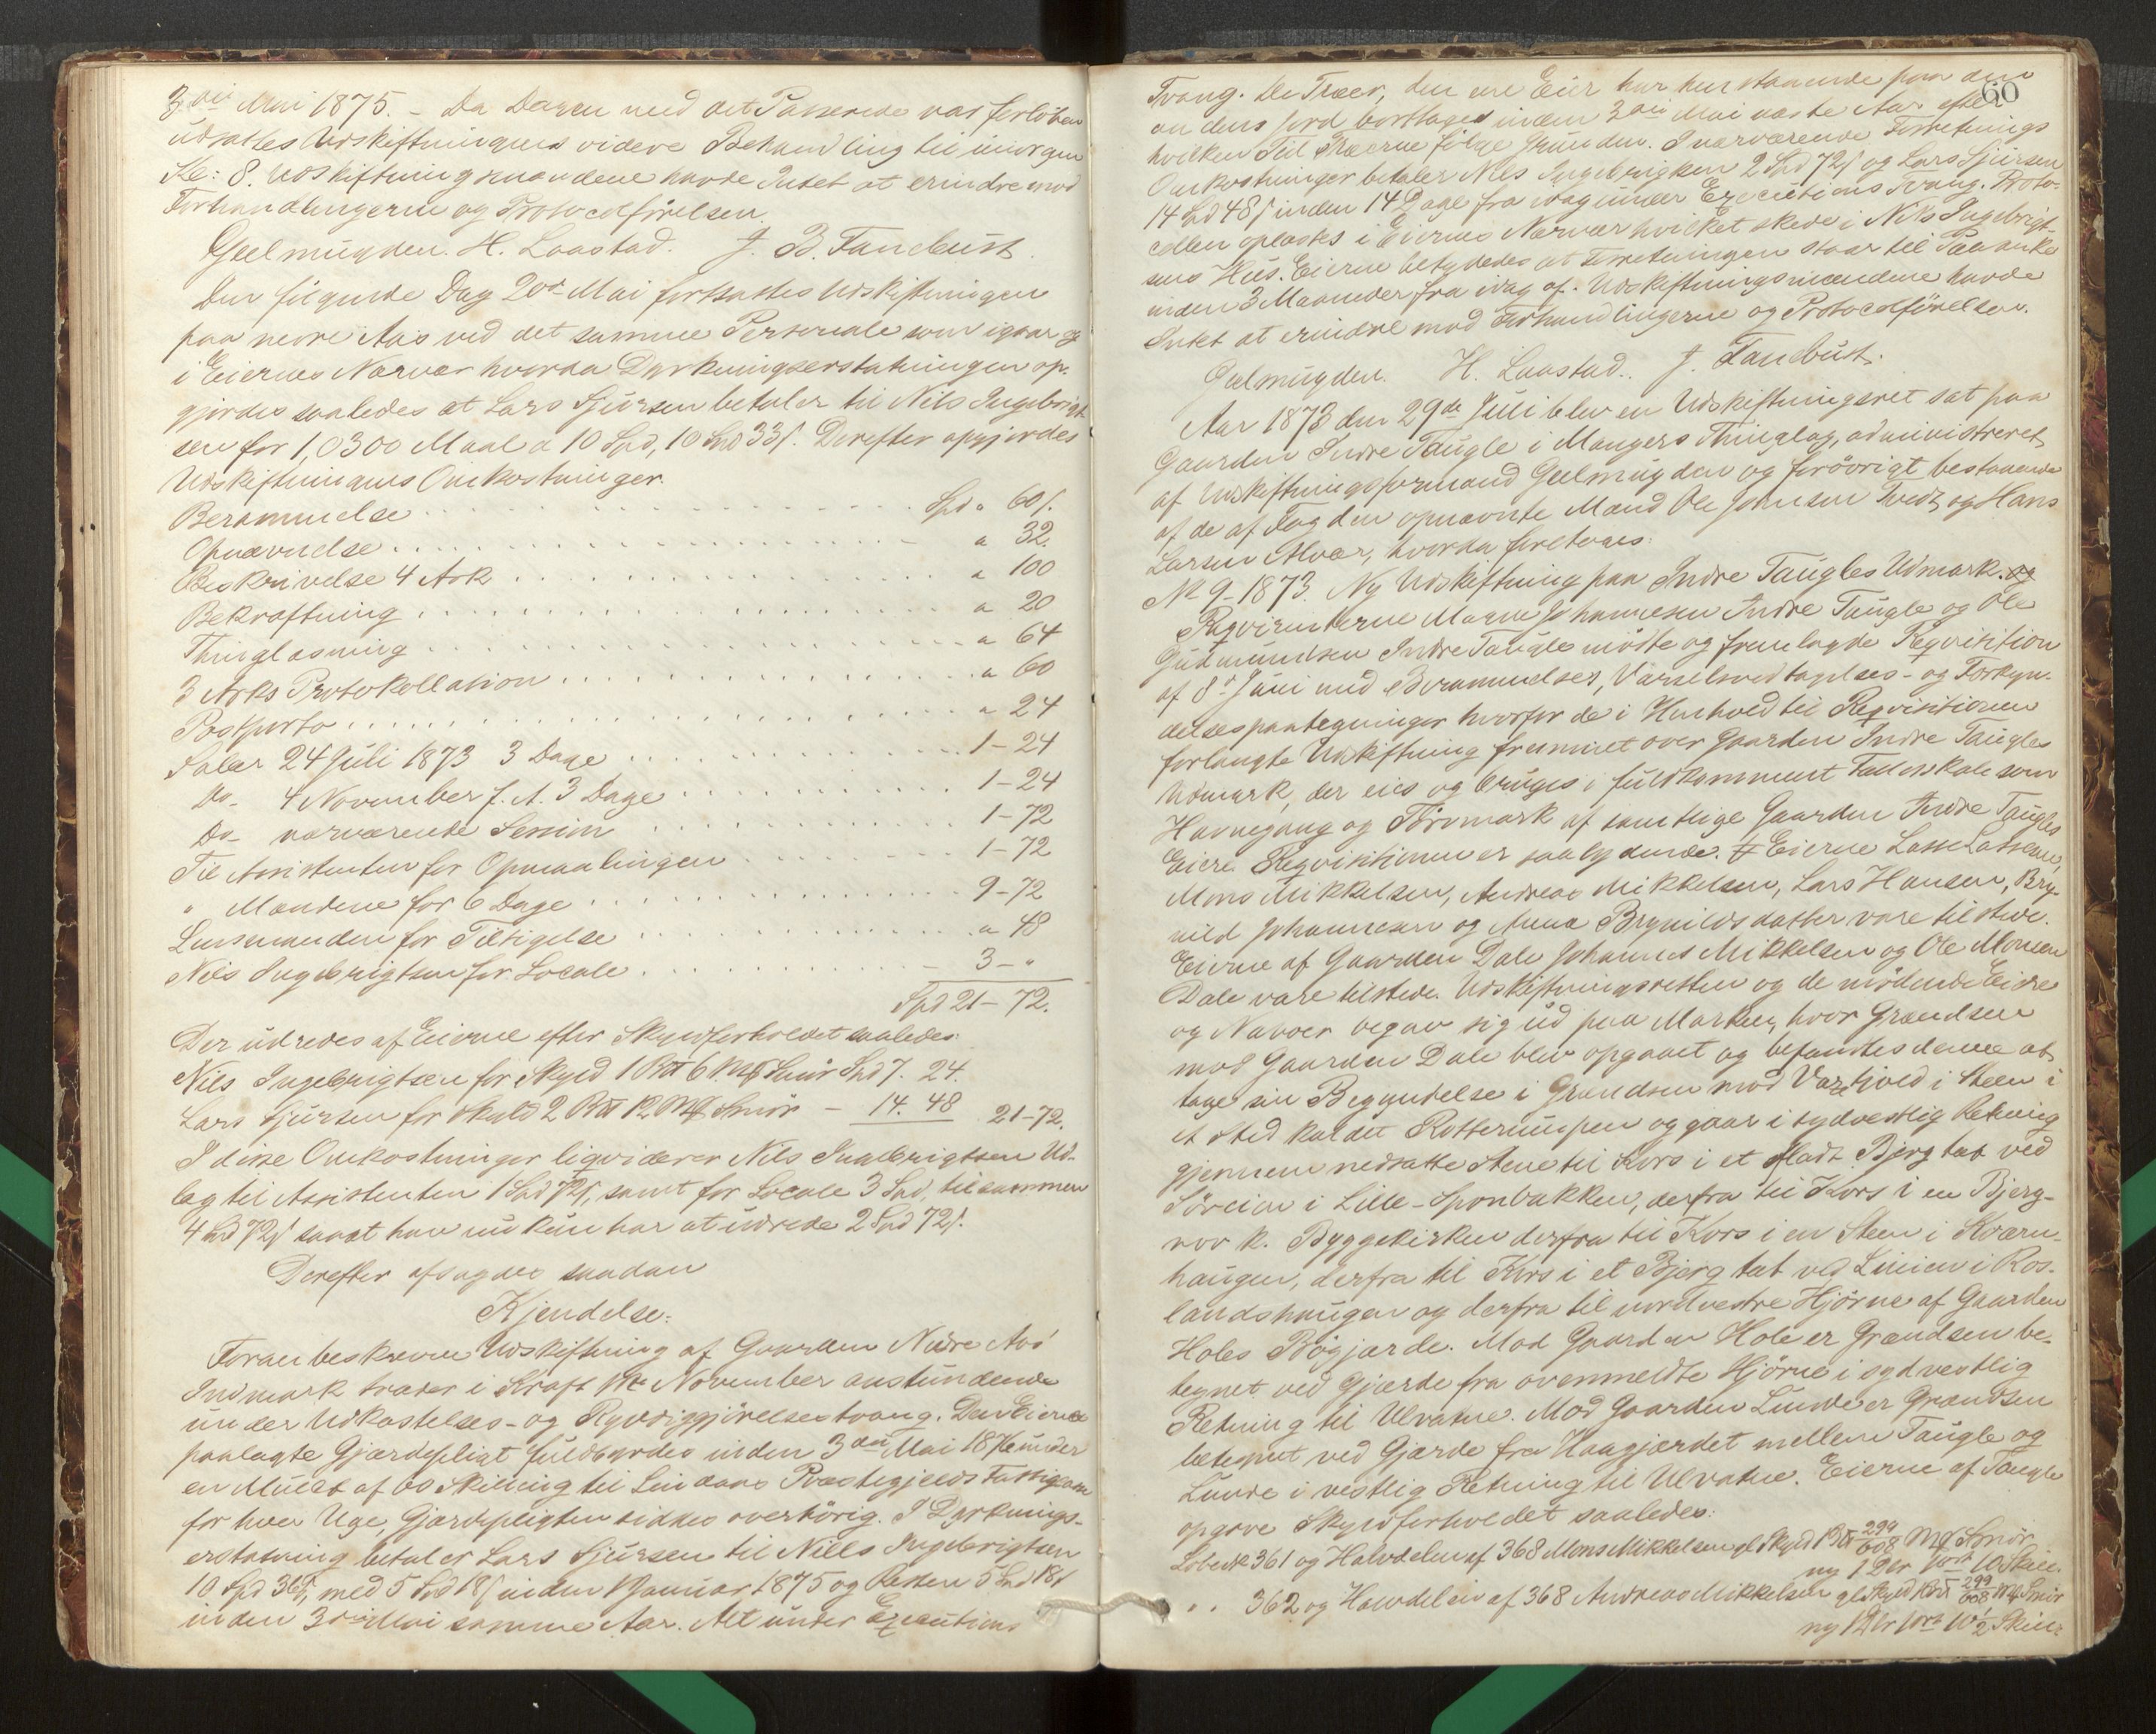 3die Mai 1875. - Da Dagen med det Passerede var forløben
udsattes Udskiftningens videre Behandling til imorgen
Kl: 8. Udskiftningsmændene havde Intet at erindre mod
Forhandlingerne og Protocolførelsen.
Geelmuyden. H. Laastad. J. B. Tandbust.
Den følgende Dag 20de Mai fortsattes Udskiftningen
paa nedre Aas ved det samme Personale som igaar og
i Eiernes Nærvær hvorda Dyrkningserstatningen op-
gjordes saaledes at Lars Sjursen betaler til Nils Ingebrigt-
sen for 1,0300 Maal a 10 Spd, 10 Spd 33 ſ. Derefter opgjordes
Udskiftningens Omkostninger.
Berammelse . . . Spd " 60 ſ.
Opnævnelse . . . " 32.
Beskrivelse 4 Ark . . . " 100
Bekræftning . . . " 20
Thinglæsning . . . " 64
3 Arks Protokollation . . . " 60
Postporto . . . " 24
Salær 24 Juli 1873 3 Dage . . . 1-24
Do- 4 November f. A. 3 Dage . . . 1-24
Do- nærværende Session . . . 1-72
Til Assistenten for Opmaalingen . . . 1-72
" Mændene for 6 Dage . . . 9-72
Lensmanden for Tilsigelse . . . " 48
Nils Ingebrigtsen for Locale . . . 3- "
Spd 21-72.
Der udredes af Eierne efter Skyldforholdet saaledes:
Nils Ingebrigtsen for Skyld 1 Pd 6 Mk Smør Spd 7. 24.
Lars Sjursen for Skyld 2 Pd 12 Mk Smør - 14. 48 21-72.
I disse Omkostninger liqviderer Nils Ingebrigtsen Ud-
læg til Assistenten 1 Spd 72 ſ, samt for Locale 3 Spd, tilsammen
4 Spd 72 ſ saaat han nu kun har at udrede 2 Spd 72 ſ.
Derefter afsagdes saadan
Kjendelse:
Foranbeskrevne Udskiftning af Gaarden Nedre Aas
Indmark træder i Kraft 1ste November anstundende
under Udkastelses- og Ryddiggjørelsestvang. Den Eierne
paalagte Gjærdepligt fuldbyrdes inden 3die Mai 1876 under
en Mulct af 60 Skilling til Lindaas Præstegjelds Fattigcasse
for hver Uge, Gjærdepligten siddes overhørig. I Dyrknings-
erstatning betaler Lars Sjursen til Niels Ingebrigtsen
10 Spd 36 ſ, med 5 Spd 18 ſ inden 1 Januar 1875 og Resten 5 Spd 18 ſ
inden 3die Mai samme Aar. Alt under Executions
60
Tvang. De Træer, den ene Eier har henstaaende paa den
andens Jord borttages inden 3die Mai næste Aar efter
hvilken Tid Træerne følge Grunden. I nærværende Forretnings
Omkostninger betaler Nils Ingebrigtsen 2 Spd 72 ſ og Lars Sjursen
14 Spd 48 ſ inden 14 Dage fra idag under Executions Tvang. Proto-
collen oplæstes i Eiernes Nærvær hvilket skede i Nils Ingebrigt-
sens Hus. Eierne betydedes at Forretningen staar til Paaanke
inden 3 Maaneder fra idag af. Udskiftningsmændene havde
Intet at erindre mod Forhandlingerne og Protocolførelsen.
Geelmuyden. H. Laastad. J. Tandbust.
Aar 1873 den 29de Juli blev en Udskiftningsret sat paa
Gaarden Indre Taugle i Mangers Thinglag, administreret
af Udskiftningsformand Geelmuyden og forøvrigt bestaaende
af de af Fogden opnævnte Mænd Ole Johnsen Tvedt og Hans
Larsen Alvær, hvorda foretoges:
No 9-1873. Ny Udskiftning paa Indre Taugles Udmark. og
Reqvirenterne Magne Johannesen Indre Taugle og Ole
Gudmundsen Indre Taugle mødte og fremlagde Reqvisition
af 8de Juni med Berammelses, Varselsvedtagelses- og Forkyn-
delsespaategninger hvorfor de i Henhold til Reqvisitionen
forlangte Udskiftning fremmet over Gaarden Indre Taugles
Udmark, der eies og bruges i fuldkomment Fællesskab som
Havnegang og Tørvmark af samtlige Gaarden Indre Taugles
Eiere. Reqvisitionen er saalydende. # Eierne Lasse Lassen,
Mons Mikkelsen, Andreas Mikkelsen, Lars Hansen, Bry-
nild Johannesen og Anna Brynildsdatter vare tilstede.
Eierne af Gaarden Dale Johannes Mikkelsen og Ole Monsen
Dale vare tilstede. Udskiftningsretten og de mødende Eiere
og Naboer begav sig ud paa Marken, hvor Grændsen
mod Gaarden Dale blev opgaaet og befandtes denne at
tage sin Begyndelse i Grændsen mod Vardtveid i Steen i
et Sted kaldet Rotterumpen og gaar i sydvestlig Retning
gjennem nedsatte Stene til Kors i et fladt Bjerg tæt ved
Søreien i Lille-Sponbakken, derfra til Kors i en Bjerg-
nov k. Byggekirken derfra til Kors i en Steen i Kværn-
haugen, derfra til Kors i et Bjerg tæt ved Linien i Ros-
landshaugen og derfra til nordvestre Hjørne af Gaarden
Holes Bøgjærde. Mod Gaarden Hole er Grændsen be-
tegnet ved Gjærde fra ovenmeldte Hjørne i sydvestlig
Retning til Ulvatne. Mod Gaarden Lunde er Grændsen
betegnet ved Gjærde fra Haagjærdet mellem Taugle og
Lunde i vestlig Retning til Ulvatne. Eierne af Taugle
opgave Skyldforholdet saaledes:
Løbe № 361 og Halvdelen af 368 Mons Mikkelsen gl Skyld 1 Pd 294/608 Mk Smør
ny 1 Dlr 1 ort 10 Skill.
" " 362 og Halvdelen af 368 Andreas Mikkelsen gl Skyld 1 Pd 299/608 Mk Smør
ny 1 Dlr 1 ort 10 1/2 Skill.